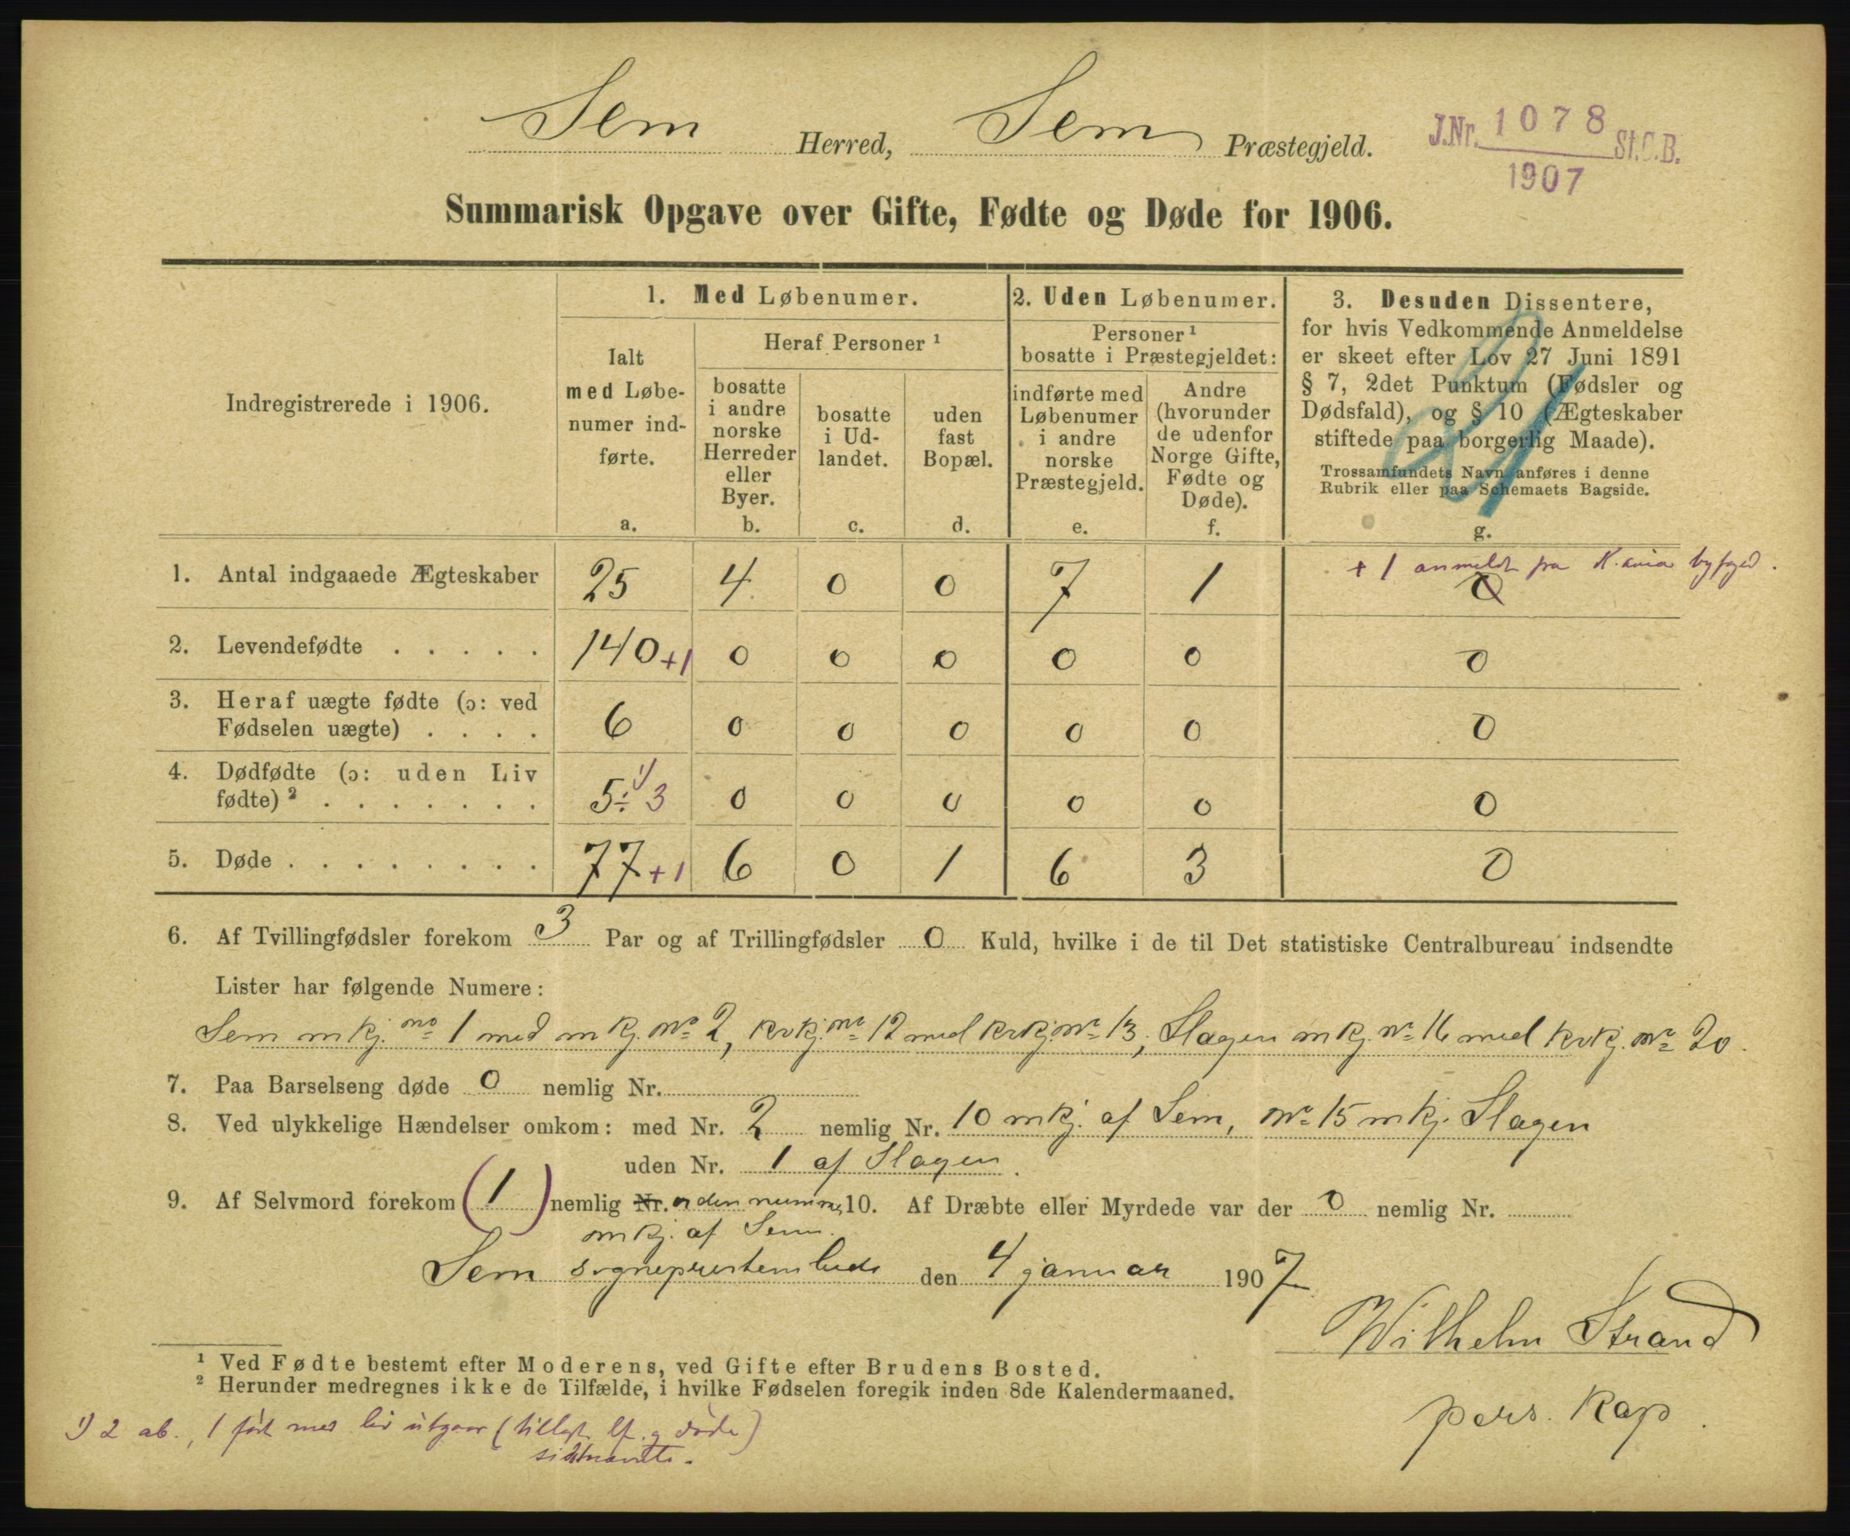 Sem Herred, Sem Præstegjeld.
J.Nr. 1078 St.C.B.
1907
Summarisk Opgave over Gifte, Fødte og Døde for 1906.
Indregistrerede i 1906.
1. Med Løbenumer.
Ialt
med Løbe-
numer ind-
førte.
a.
Heraf Personer ¹
bosatte
i andre
norske
Herreder
eller
Byer.
b.
bosatte
i Ud-
landet.
c.
uden
fast
Bopæl.
d.
2. Uden Løbenumer.
Personer ¹
bosatte i Præstegjeldet:
indførte med
Løbenumer
i andre
norske
Præstegjeld.
e.
Andre
(hvorunder
de udenfor
Norge Gifte,
Fødte og
Døde).
f.
3. Desuden Dissentere,
for hvis Vedkommende Anmeldelse
er skeet efter Lov 27 Juni 1891
§ 7, 2det Punktum (Fødsler og
Dødsfald), og § 10 (Ægteskaber
stiftede paa borgerlig Maade).
Trossamfundets Navn anføres i denne
Rubrik eller paa Schemaets Bagside.
g.
+ 1 anmeldt fra K.ania byfoged.
1. Antal indgaaede Ægteskaber 25 4 0 0 7 1 0
2. Levendefødte . . . . . 140+1 0 0 0 0 0 0
3. Heraf uægte fødte (ɔ: ved
Fødselen uægte) . . . . 6 0 0 0 0 0 0
4. Dødfødte (ɔ: uden Liv
fødte) ² . . . . . . . 5÷3 ¹⁾ 0 0 0 0 0 0
5. Døde . . . . . . . . 77+1 6 0 1 6 3 0
6. Af Tvillingfødsler forekom 3 Par og af Trillingfødsler 0 Kuld, hvilke i de til Det statistiske Centralbureau indsendte
Lister har følgende Numere:
Sem mkj. no 1 med mkj. No 2, kvkj. no 12 med kvkj. no 13, Slagen mkj. no 16 med kvkj. no 20.
7. Paa Barselseng døde 0 nemlig Nr.
8. Ved ulykkelige Hændelser omkom: med Nr. 2 nemlig Nr. 10 mkj. af Sem, no 15 mkj. Slagen
uden Nr. 1 af Slagen.
9. Af Selvmord forekom (1) nemlig Nr. uden numme, 10. Af Dræbte eller Myrdede var der 0 nemlig Nr.
mkj. af Sem.
Sem sogneprestembede den 4 januar 1907
Wilhelm Strand
pers. Kap.
¹ Ved Fødte bestemt efter Moderens, ved Gifte efter Brudens Bosted.
² Herunder medregnes ikke de Tilfælde, i hvilke Fødselen foregik inden 8de Kalendermaaned.
1) 2 ab., 1 født med liv utgaar (tillagt lf. og døde)